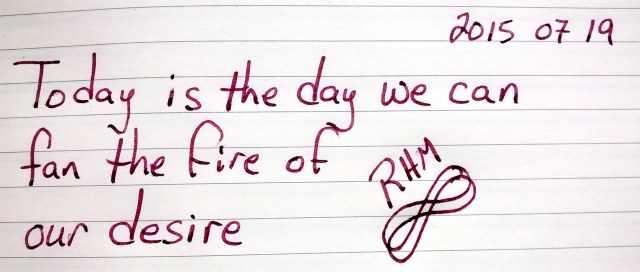 2015 07 19
Today is the day we can
fan the fire of
our desire
RHM